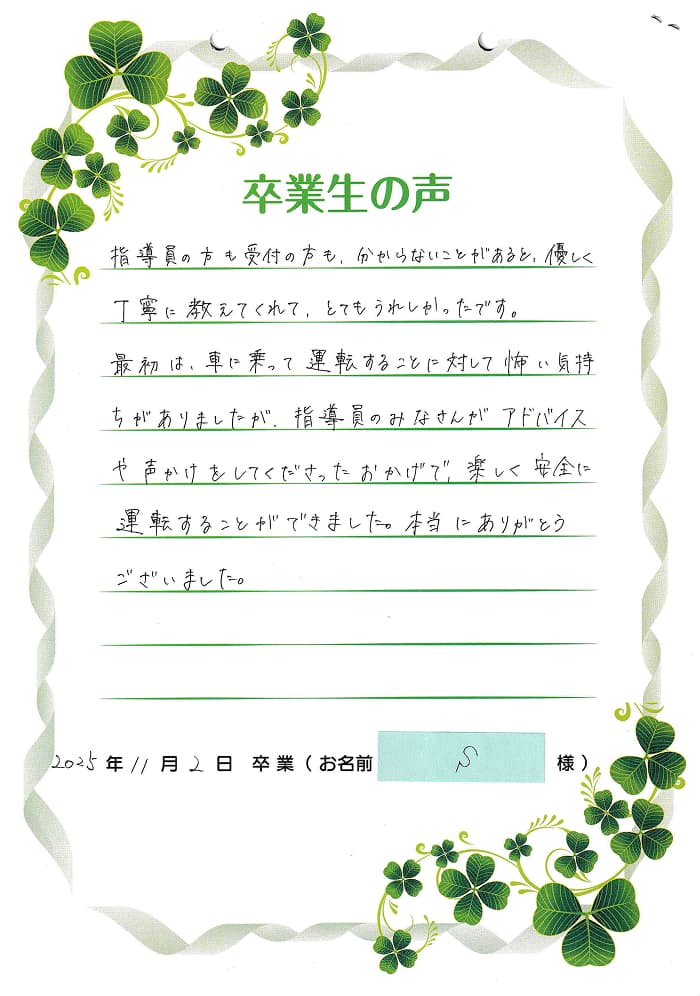 卒業生の声
指導員の方も受付の方も、分からないことがあると、優しく
丁寧に教えてくれて、とてもうれしかったです。
最初は、車に乗って運転することに対して怖い気持
ちがありましたが、指導員のみなさんがアドバイス
や声かけをしてくださったおかげで、楽しく安全に
運転することができました。本当にありがとう
ございました。
2025年11月2日 卒業(お名前 S 様)